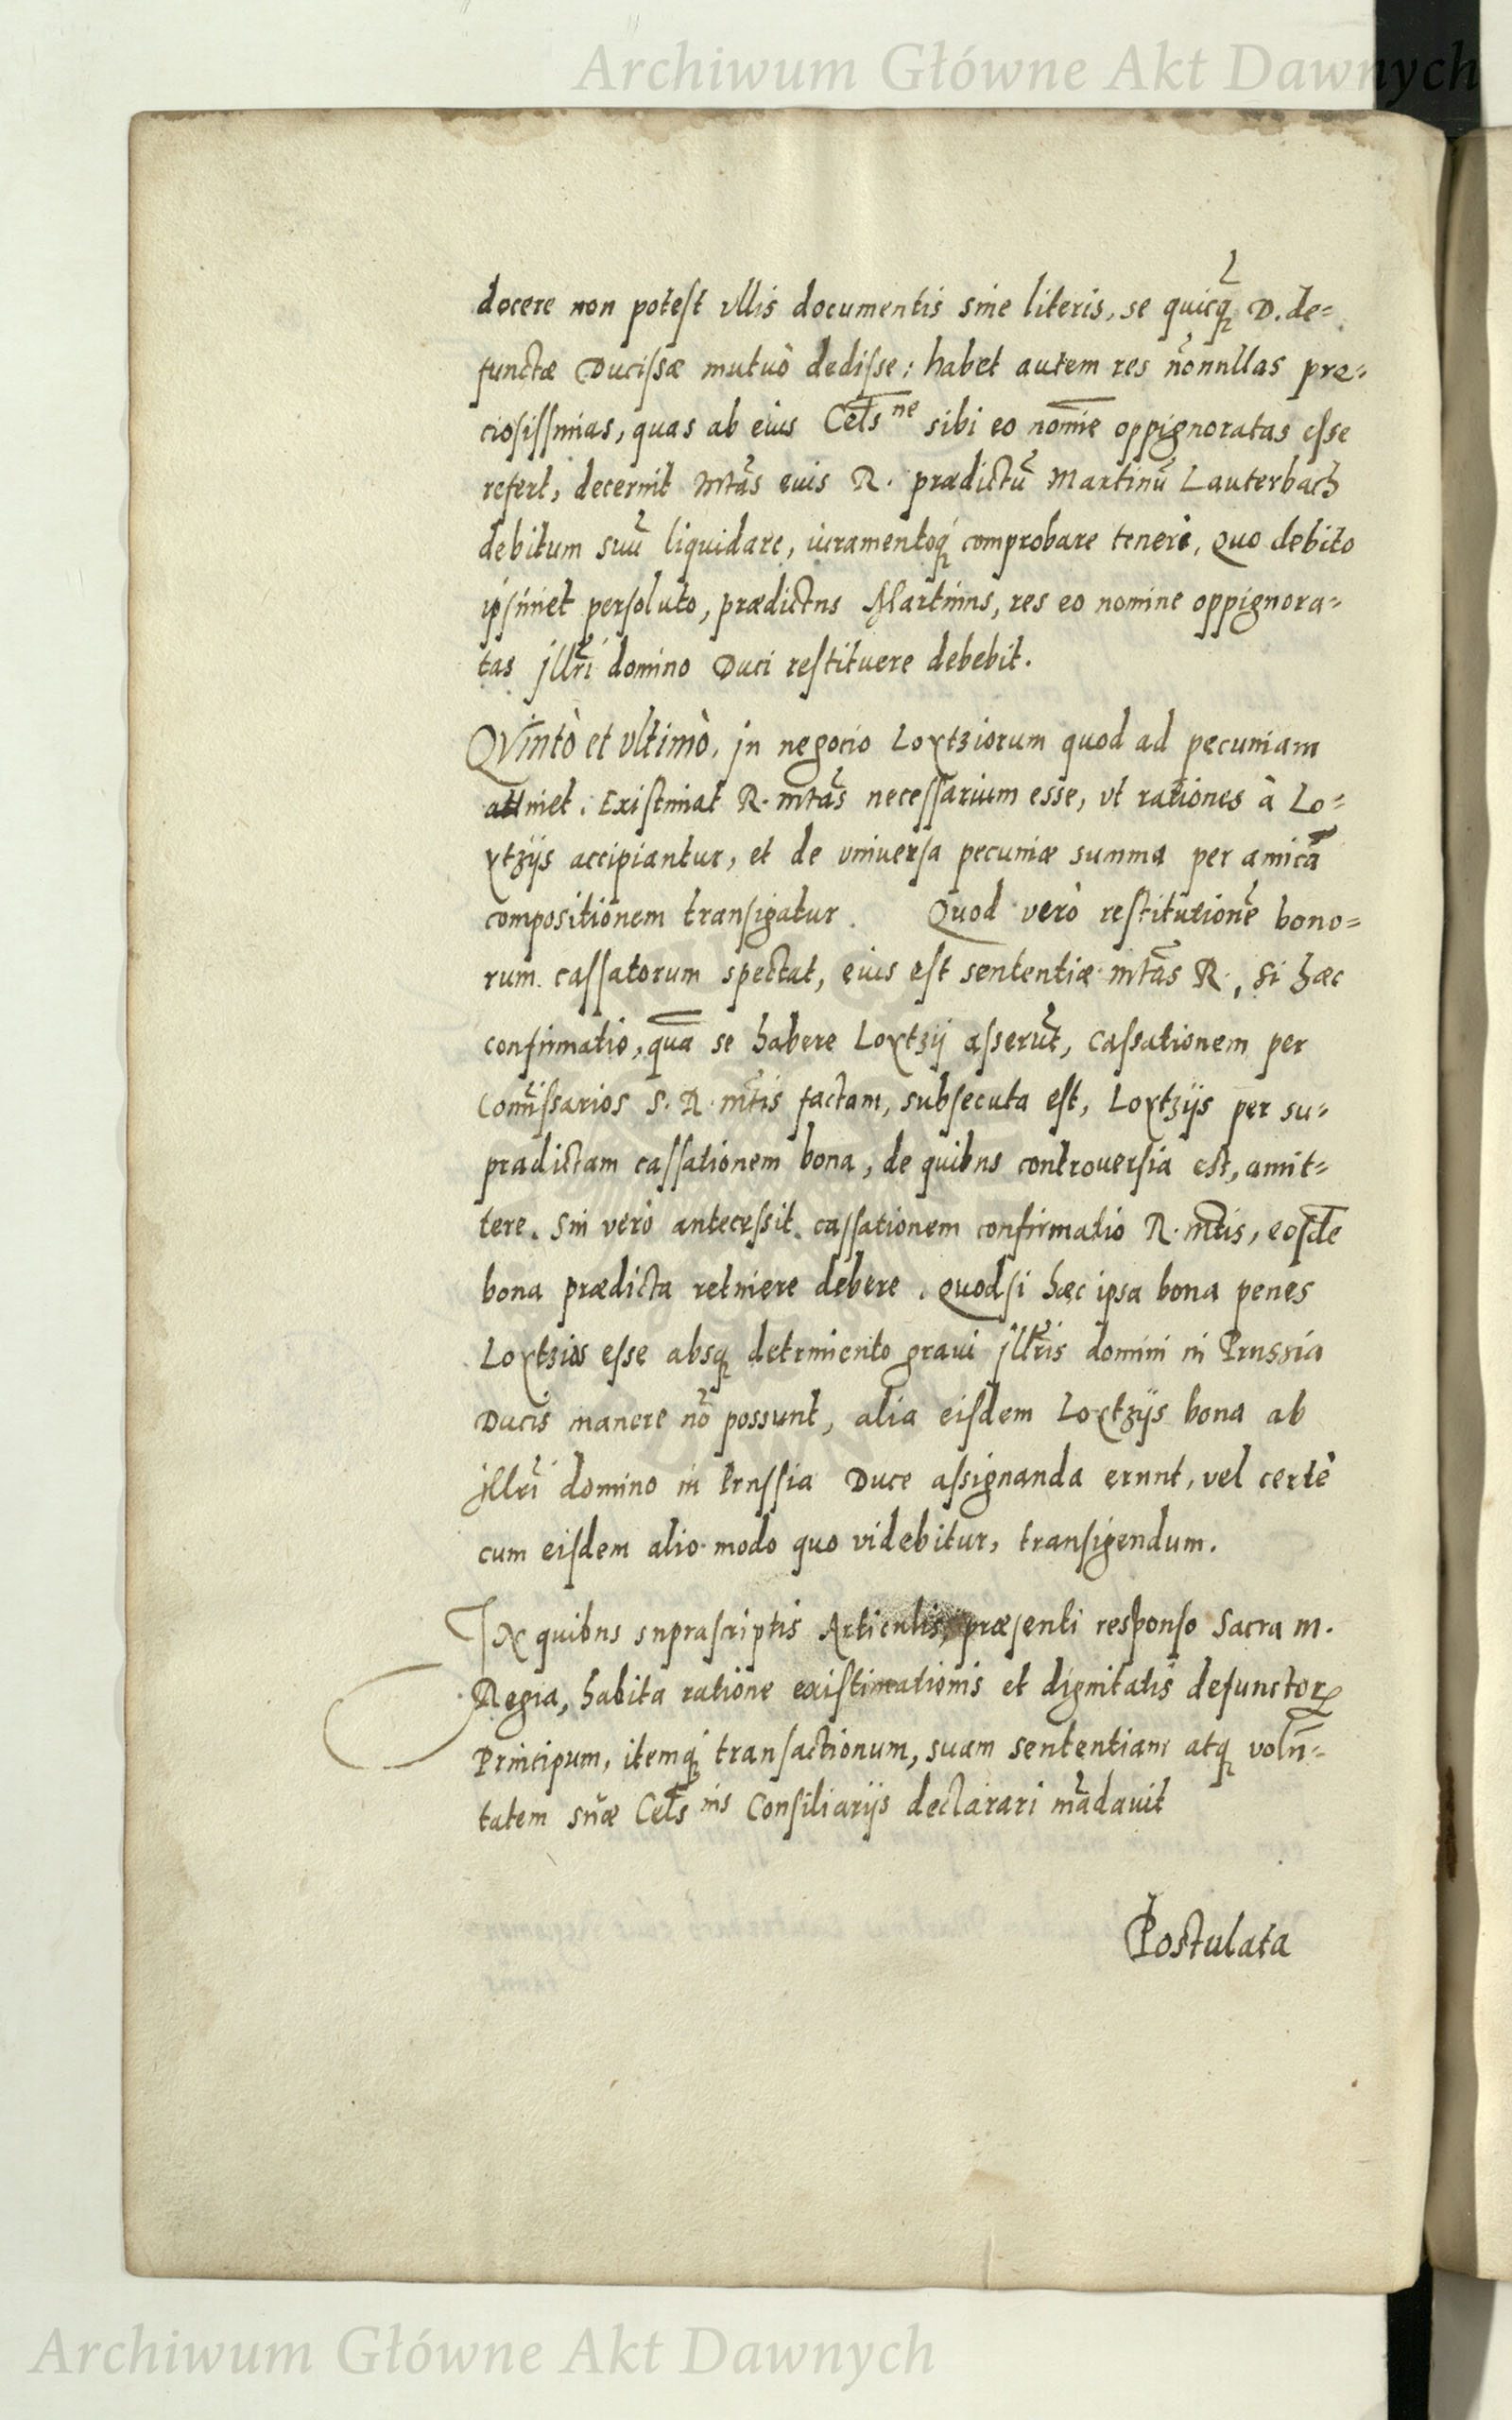 Archiwum Główne Akt Dawnych
docere non potest vllis documentis sine literis, se quicq̃ D. de=
functæ Ducissæ mutuò dedisse: habet autem res nõnnllas pre=
ciosissimas, quas ab eius Cels^ne sibi eo nom̃ie oppignoratas esse
refert, decernit Mtãs eius R. prædictũ Martinũ Lauterbach
debitum suũ liquidare, iuramentoq́ comprobare teneri, Quo debito
ipsimet persoluto, prædictus Martinus, res eo nomine oppignora=
tas jllrĩ domino Duci restituere debebit.
QVintò et vltimò, jn negocio Loxtziorum quod ad pecuniam
attinet. Existimat R. Mtãs necessarium esse, vt rationes à Lo=
xtzijs accipiantur, et de vniuersa pecuniæ summa per amicã
compositionem transigatur. Quod verò restitutionẽ bono=
rum cassatorum spectat, eius est sententiæ Mtãs R., si hæc
confirmatio, quã se habere Loxtzij asserũt, cassationem per
Com̃issarios S. R. Mtis factam, subsecuta est, Loxtzijs per su=
pradictam cassationem bona, de quibus controuersia est, amit=
tere. Sin verò antecessit cassationem confirmatio R. Mtis, eosdẽ
bona prædicta retinere debere. Quodsi hæc ipsa bona penes
Loxtzios esse absq detrimento graui jllr̃is domini in Prussia
Ducis manere nõ possunt, alia eisdem Loxtzijs bona ab
jllrĩ domino in Prussia Duce assignanda erunt, vel certè
cum eisdem alio modo quo videbitur, transigendum.
Ex quibus suprascriptis Articulis, præsenti responso Sacra M.
Regia, habita ratione existimationis et dignitatis defunctorꝝ
Principum, itemq́ transactionum, suam sententiam atq volũ=
tatem sũæ Cels^nis Consiliarijs declarari mãdauit
Postulata
Archiwum Główne Akt Dawnych